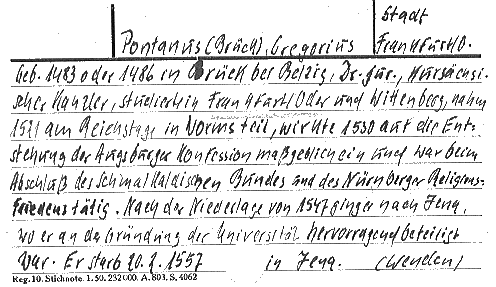 Stadt
Pontanus (Brück), Gregorius Frankfurt/O.
Geb. 1483 oder 1486 in Brück bei Belzig, Dr. jur., Kursächsi-
scher Kanzler, studierte in Frankfurt/Oder und Wittenberg, nahm
1521 am Reichstage in Worms teil, wirkte 1530 auf die Ent-
stehung der Augsburger Konfession maßgeblich ein und war beim
Abschluß des Schmalkaldischen Bundes und des Nürnberger Religions-
friedens tätig. Nach der Niederlage von 1547 ging er nach Jena,
wo er an der Gründung der Universität hervorragend beteiligt
war. Er starb 20. 2. 1557 in Jena. (Wenden)
Reg. 10. Stichnote. 1. 50. 232000. A. 803. S. 4062